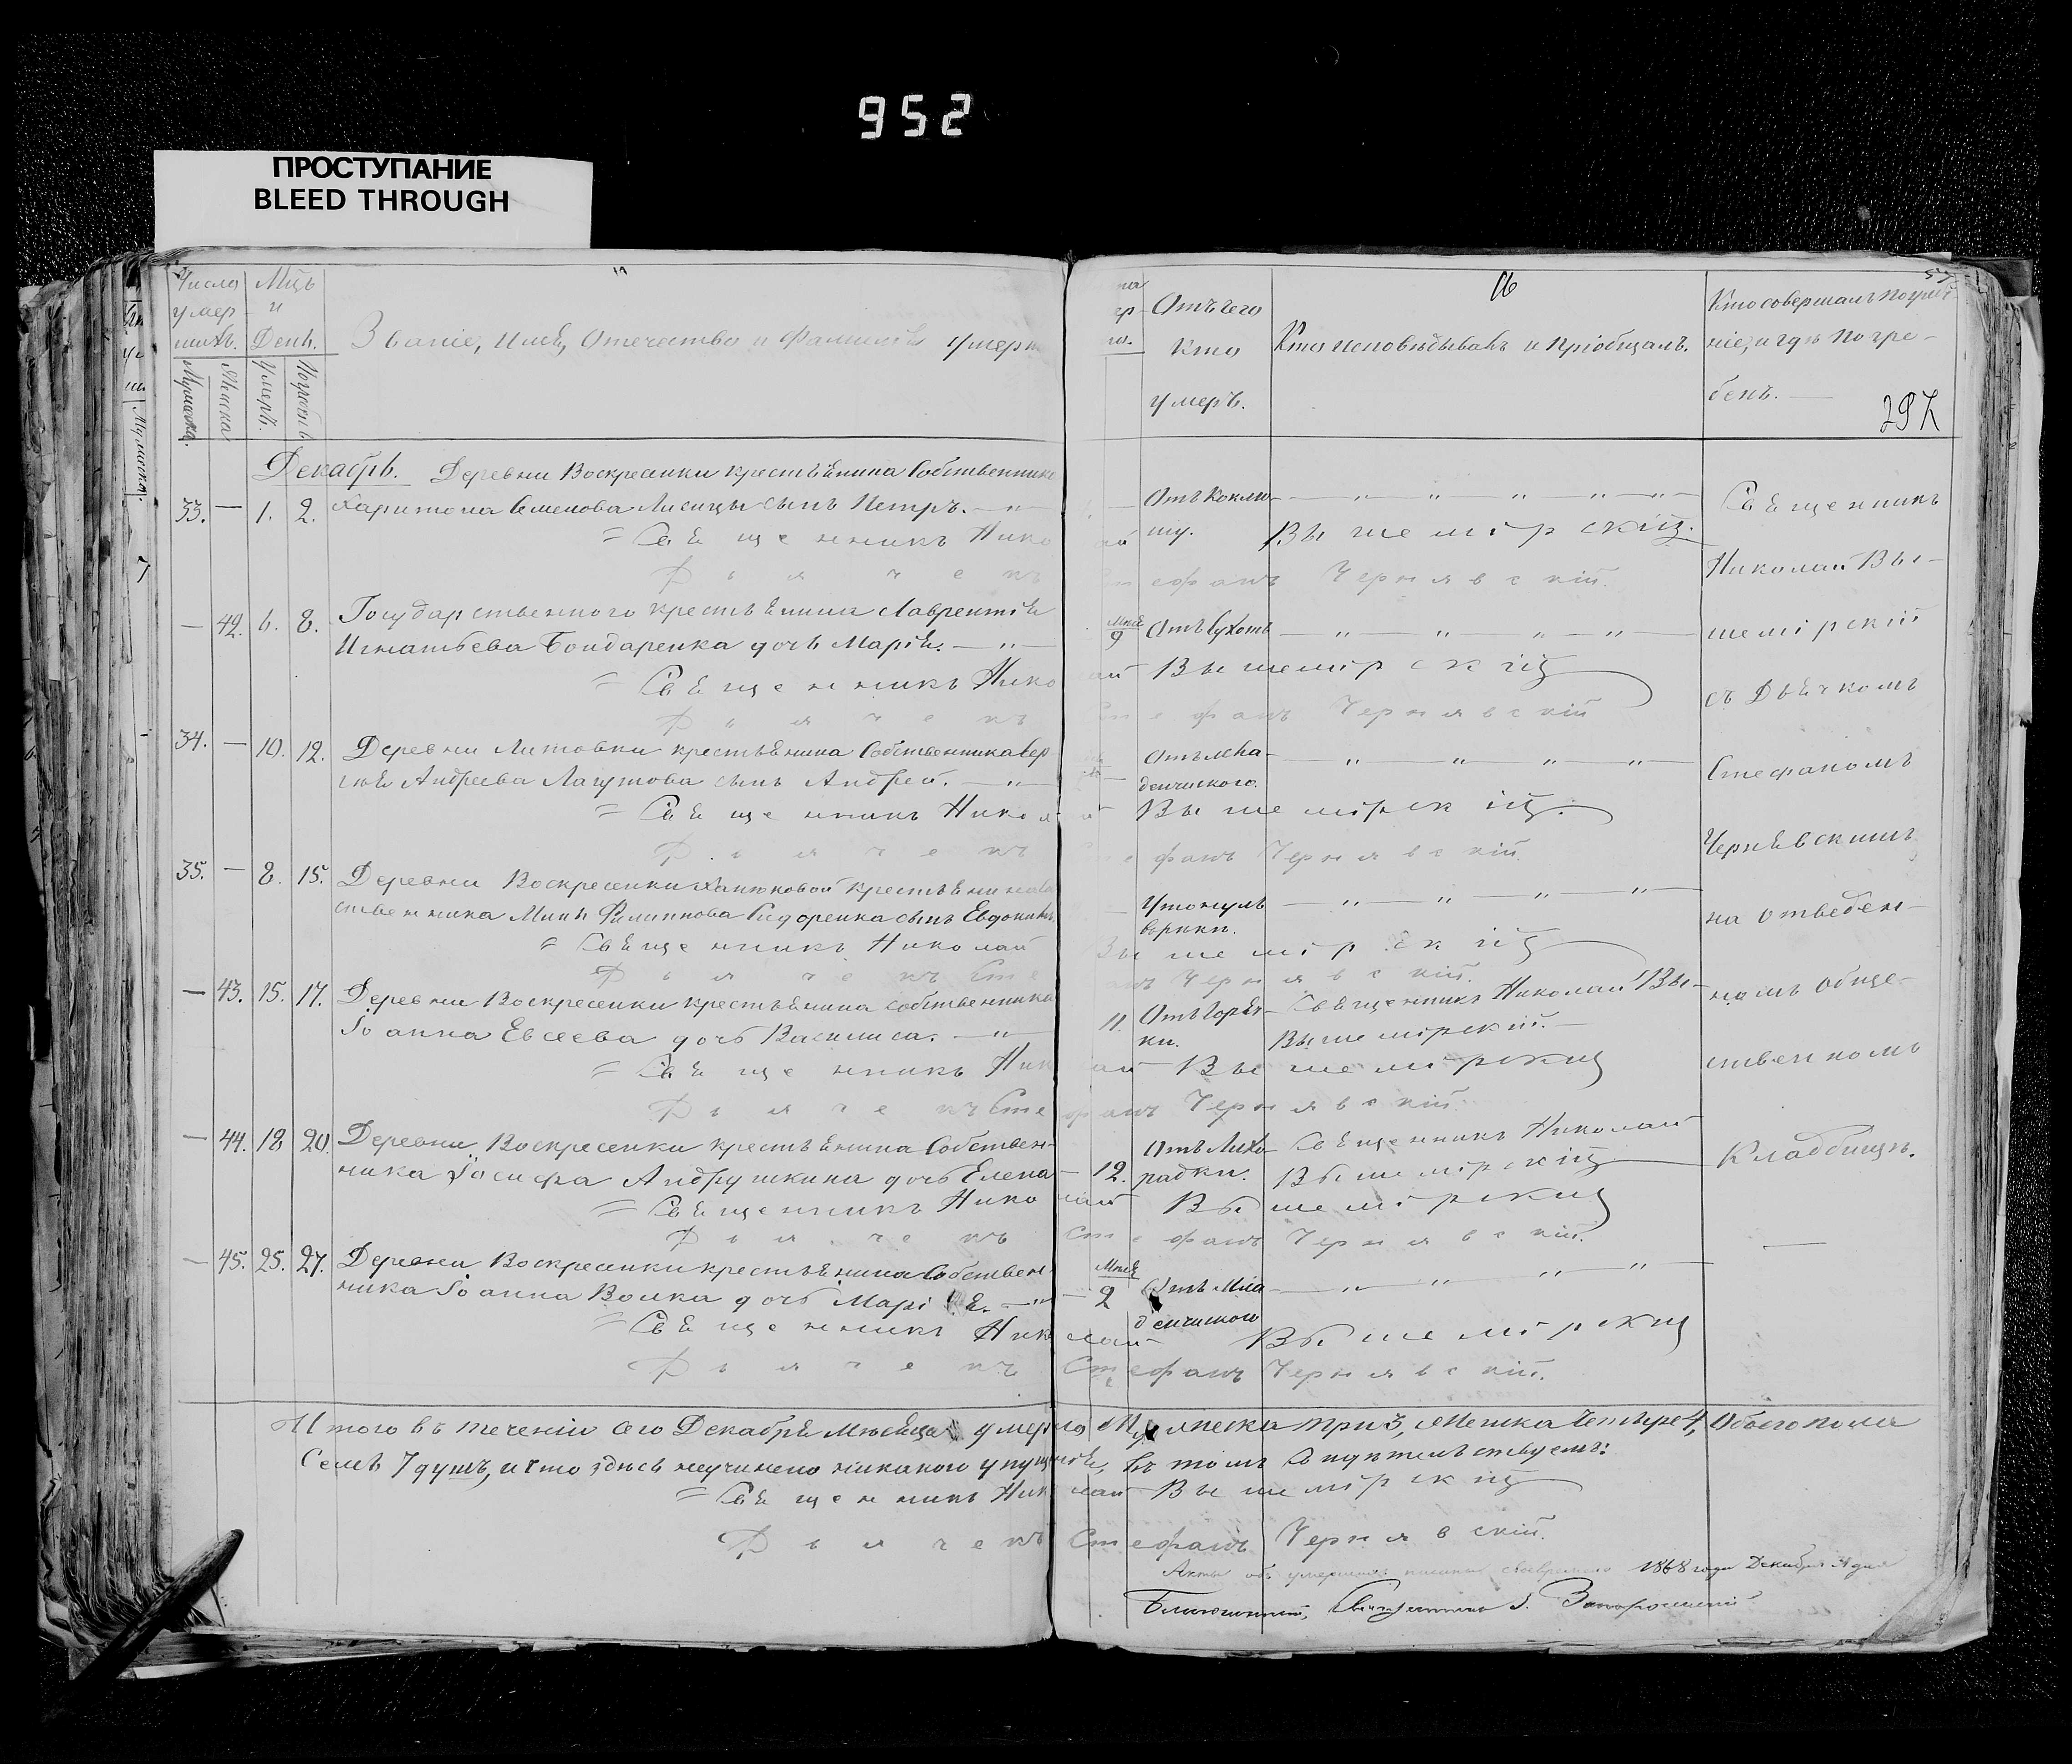 952
ПРОСТУПАНИЕ
BLEED THROUGH
Числа умершихъ. Мцъ и День. Званіе, Имя, Отечество и Фамилія умерш
Мужеска. Женска. Умеръ. Погребенъ.
Отъ чего Кто умеръ.
16
Кто исповѣдывалъ и Пріобщалъ.
Кто совершалъ погребеніе, и гдѣ погребенъ.
297
Декабрь. Деревни Воскресенки крестьянина Собственника
33. — 1. 2. Харитона Семенова Лисицы сынъ Петръ. — Отъ коклюшу.
= Священникъ Николай Вышемірскій.
Дьячекъ Стефанъ Чернявскій.
— 42. 6. 8. Государственного крестьянина Лаврентія
Игнатьева Бондаренка дочь Марія. — 9 Отъ сухотъ
= Священникъ Николай Вышемірскій
Дьячекъ Стефанъ Чернявскій
34. — 10. 12. Деревни Литовки крестьянина Собственника Сер
гія Андреева Лагутова сынъ Андрей. — Отъ младенческого.
= Священникъ Николай Вышемірскій.
Дьячекъ Стефанъ Чернявскій
35. — 8. 15. Деревни Воскресенки крестьянина
ственника Мины Филиппова Сидоренка сынъ Евдокимъ Утонулъ
= Священникъ Николай Вышемірскій
Дьячекъ Стефанъ Чернявскій.
— 43. 15. 17. Деревни Воскресенки крестьянина собственника
Іоанна Евсеева дочь Василиса. — 11. Отъ Горячки. Священникъ Николай Вышемірскій.
= Священникъ Николай Вышемірский
Дьячекъ Стефанъ Чернявскій.
— 44. 18 20. Деревни Воскресенки крестьянина Собствен-
ника Іосифа Андрушкина дочь Елена — 12. Отъ Лихорадки. Священникъ Николай Вышемірскій
= Священникъ Николай Вышемірский
Дьячекъ Стефанъ Чернявскій.
— 45. 25. 27. Деревни Воскресенки крестьянина Собствен-
ника Іоанна Волка дочь Марія. — 2 Отъ Младенческого
= Священникъ Николай Вышемірский
Дьячекъ Стефанъ Чернявскій.
Священникъ
Николай Вы-
шемірскій
съ Дьячкомъ
Стефаномъ
Чернявскимъ
на отведен-
номъ обще-
ственномъ
Кладбищѣ.
Итого въ теченіи сего Декабря Мѣсяца умерло Мужеска три 3, Женска Четыре 4, Обоего пола
Семь 7 душъ, и что здѣсь неучинено никакого упущенія, въ томъ
= Священникъ Николай Вышемірскій
Дьячекъ Стефанъ Чернявскій.
Акты объ умершихъ 1868 года Декабря дня
Священникъ